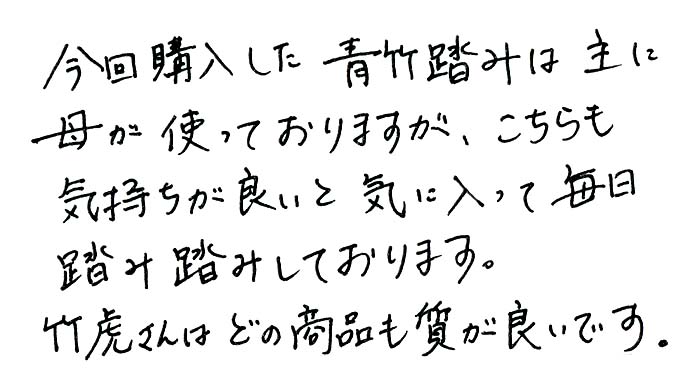 今回購入した青竹踏みは主に
母が使っておりますが、こちらも
気持ちが良いと気に入って毎日
踏み踏みしております。
竹虎さんはどの商品も質が良いです。